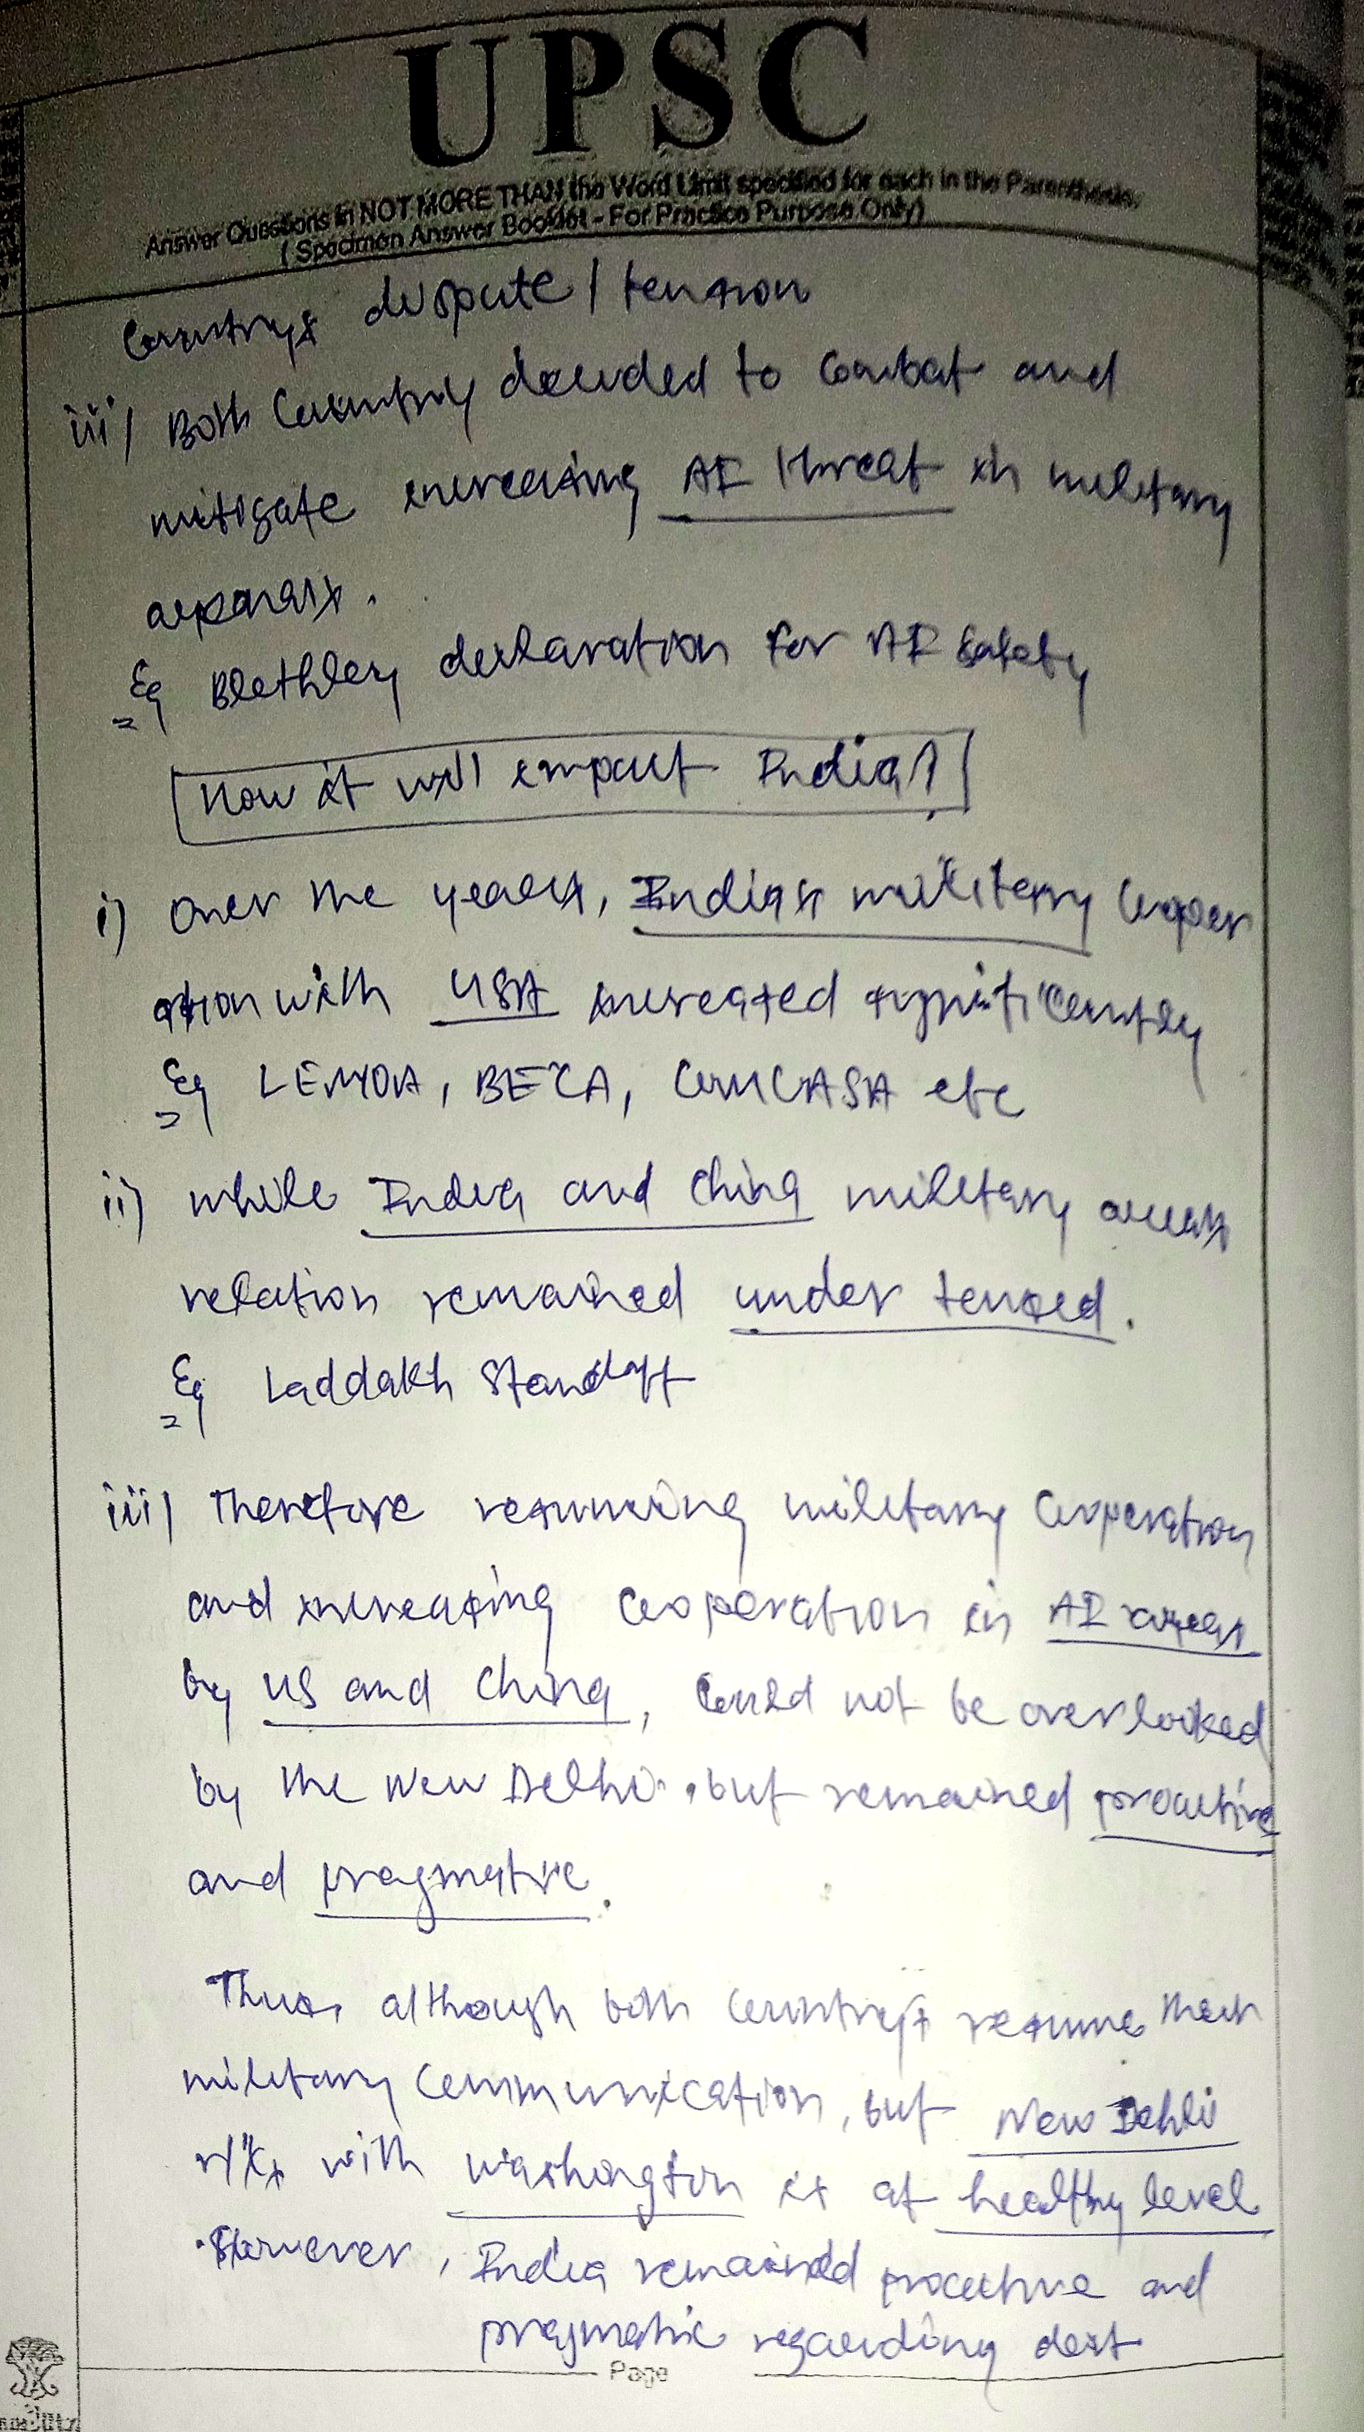 UPSC
Answer Questions in NOT MORE THAN the Word Limit specified for each in the Parenthesis.
( Specimen Answer Booklet - For Practice Purpose Only)
Countrys dispute / tension
iii) Both Country decided to combat and
mitigate increasing AI threat in military
Eg Blethley declaration for AI Safety
How it will impact India?
i) Over the years, India's military cooper
ation with USA increased significantly
Eg LEMOA, BECA, COMCASA etc
ii) while India and China military
relation remained under tensed.
Eg Laddakh Standoff
iii) Therefore resuming military Cooperation
and increasing cooperation in AI areas
by US and China, could not be overlooked
by the New Delhi. but remained proactive
and pragmative.
Thus, although both countrys resume their
military communication, but New Dehli
with Washington is at healthy level
However, India remained proactive and
pragmatic regarding
Page